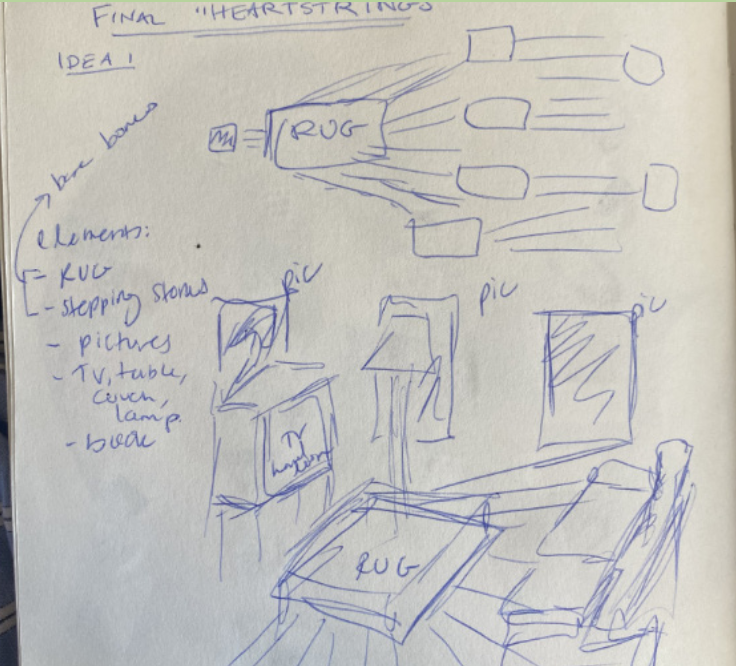 FINAL "HEARTSTRINGS"
IDEA 1
RUG
bare bones
elements:
- RUG
- stepping stones
- pictures
- TV, table,
couch,
lamp.
- book
pic
pic
pic
TV
RUG